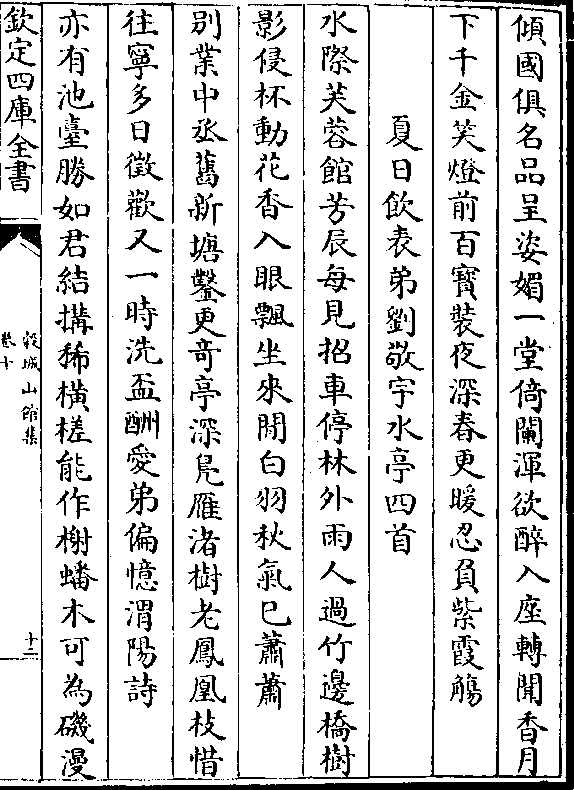 傾國俱名品呈姿媚一堂倚闌渾欲醉入座轉聞香月
下千金笑燈前百寶裝夜深春更暖忍負紫霞觴
夏日飲表弟劉敬宇水亭四首
水際芙蓉館芳辰每見招車停林外雨人過竹邊橋樹
影侵杯動花香入眼飄坐來閒白羽秋氣已蕭蕭
別業中丞舊新塘鑿更竒亭深鳬雁渚樹老鳳凰枝惜
往寧多日徵歡又一時洗盃酬愛弟偏憶渭陽詩
亦有池臺勝如君結搆稀橫槎能作榭蟠木可為磯漫
欽定四庫全書
穀城山館集
卷十
十二